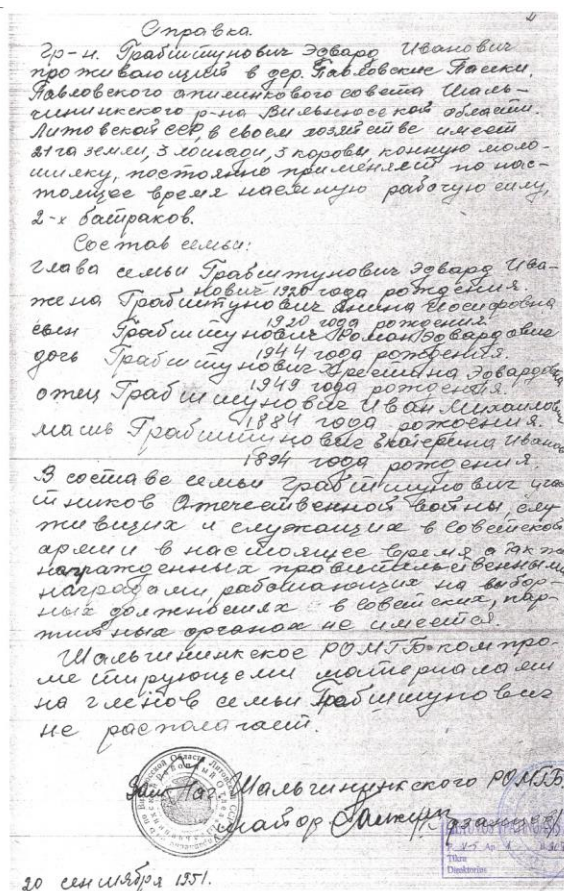 4
Справка.
Гр-н. Грабштунович Эдвард Иванович
проживающий в дер. Павловские Пасеки,
Павловского апилинкового совета Шаль-
чининкского р-на Вильнюсской области.
Литовской ССР, в своем хозяйстве имеет
21 га земли, 3 лошади, 3 коровы, конную моло-
тилку, постоянно применяет по нас-
тоящее время наемную рабочую силу,
2-х батраков.
Состав семьи:
глава семьи Грабштунович Эдвард Ива-
нович 1920 года рождения.
жена Грабштунович Янина Иосифовна
1920 года рождения.
сын Грабштунович Роман Эдвардович
1944 года рождения.
дочь Грабштунович Эдвардовна
1949 года рождения.
отец Грабштунович Иван Михайлович
1884 года рождения.
мать Грабштунович Екатерина Иванов
1894 года рождения.
В составе семьи Грабштунович учас
тников Отечественной войны, слу-
живших и служащих в Советской
армии в настоящее время а также
награжденных правительственными
наградами, работающих на выбор-
ных должностях в советских, пар-
тийных органах не имеется.
Шальчининкское РОМГБ компро-
метирующеми материалами
на членов семьи Грабштунович
не располагает.
Зам. Нач. Шальчининкского РОМГБ
майор
20 сентября 1951.